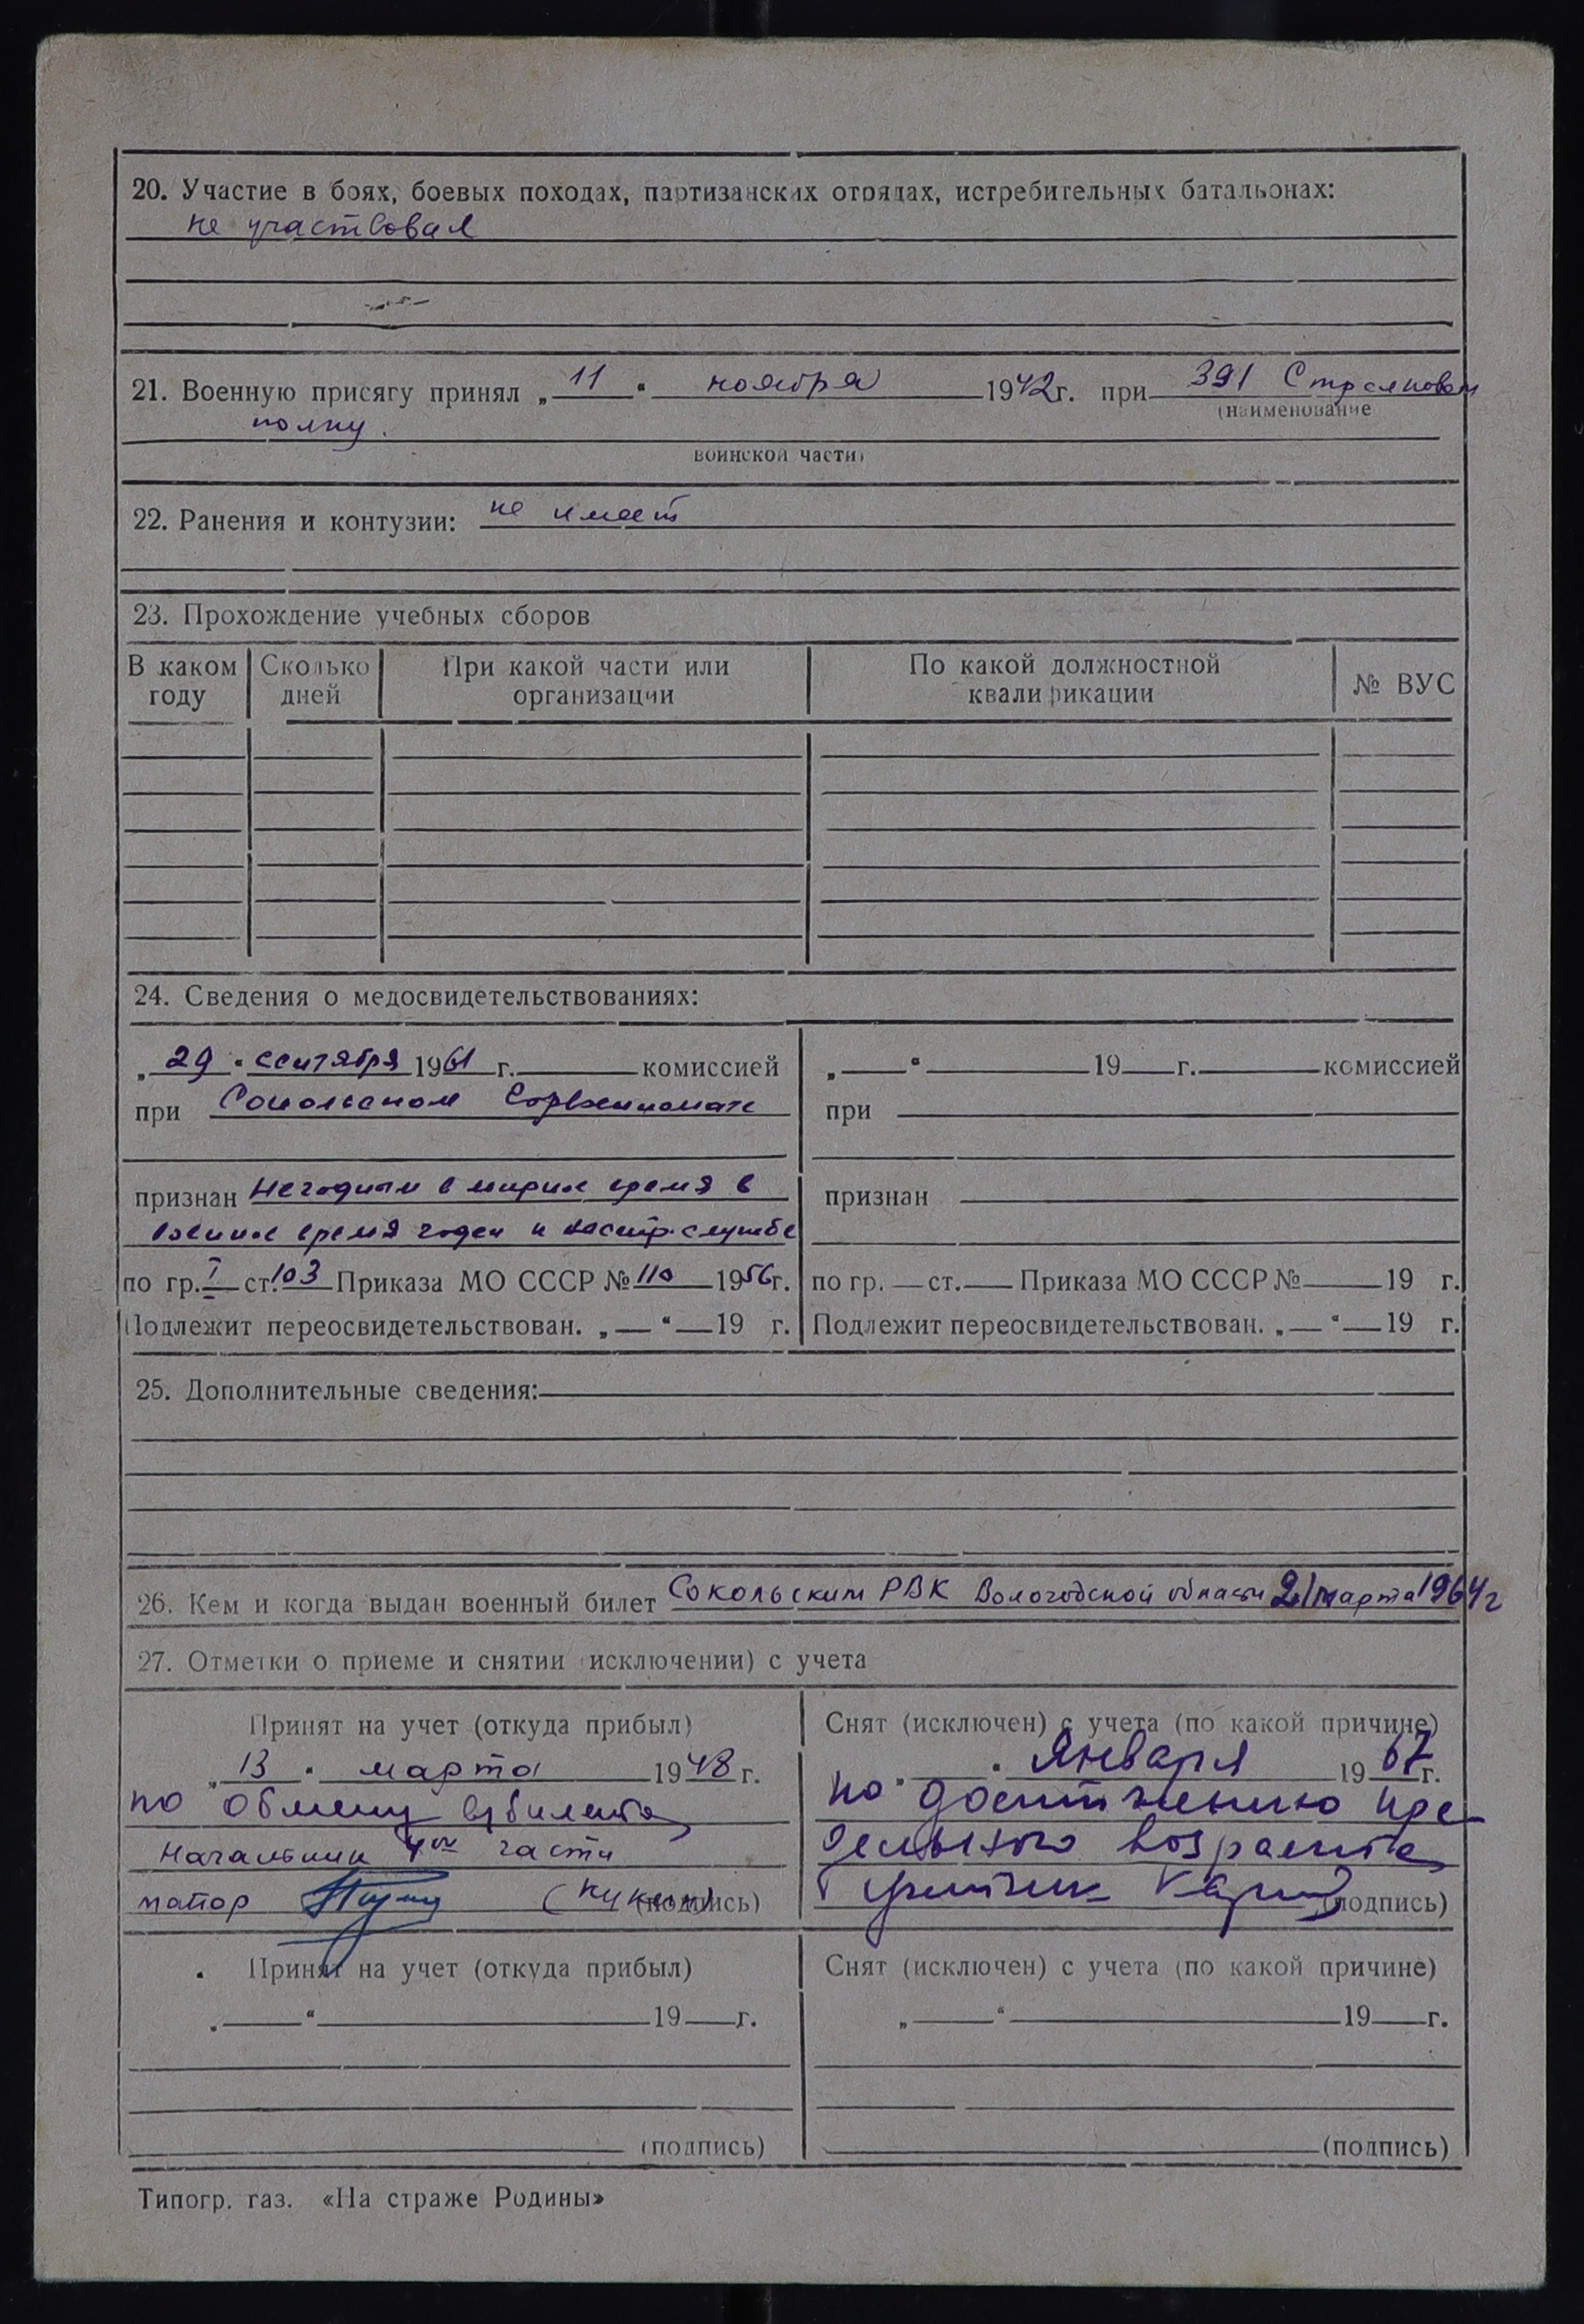 20. Участие в боях, боевых походах, партизанских отрядах, истребительных батальонах:
не участвовал
21. Военную присягу принял „ 11 “ ноября 1942г. при 391 Стрелковом
(наименование
полку.
воинской части)
22. Ранения и контузии: не имеет
23. Прохождение учебных сборов
В каком году Сколько дней При какой части или организации По какой должностной квалификации № ВУС
24. Сведения о медосвидетельствованиях:
„ 29 “ сентября 1961 г. комиссией
при Сокольском Горвоенкомате
признан Негодным в мирное время в
военное время годен к нестр. службе
по гр. I ст. 103 Приказа МО СССР № 110 1956г.
Подлежит переосвидетельствован. „ “ 19 г.
„ “ 19 г. комиссией
при
признан
по гр. ст. Приказа МО СССР № 19 г.
Подлежит переосвидетельствован. „ “ 19 г.
25. Дополнительные сведения:
26. Кем и когда выдан военный билет Сокольским РВК Вологодской области 21 марта 1964г
27. Отметки о приеме и снятии (исключении) с учета
Принят на учет (откуда прибыл)
„ 13 “ марта 1948 г.
по обмену в/билета
Начальник 4ой части
майор (Кукин) (подпись)
Снят (исключен) с учета (по какой причине)
„ “ Января 1967г.
по достижению пре-
дельного возраста
(подпись)
Принят на учет (откуда прибыл)
„ “ 19 г.
(подпись)
Снят (исключен) с учета (по какой причине)
„ “ 19 г.
(подпись)
Типогр. газ. «На страже Родины»